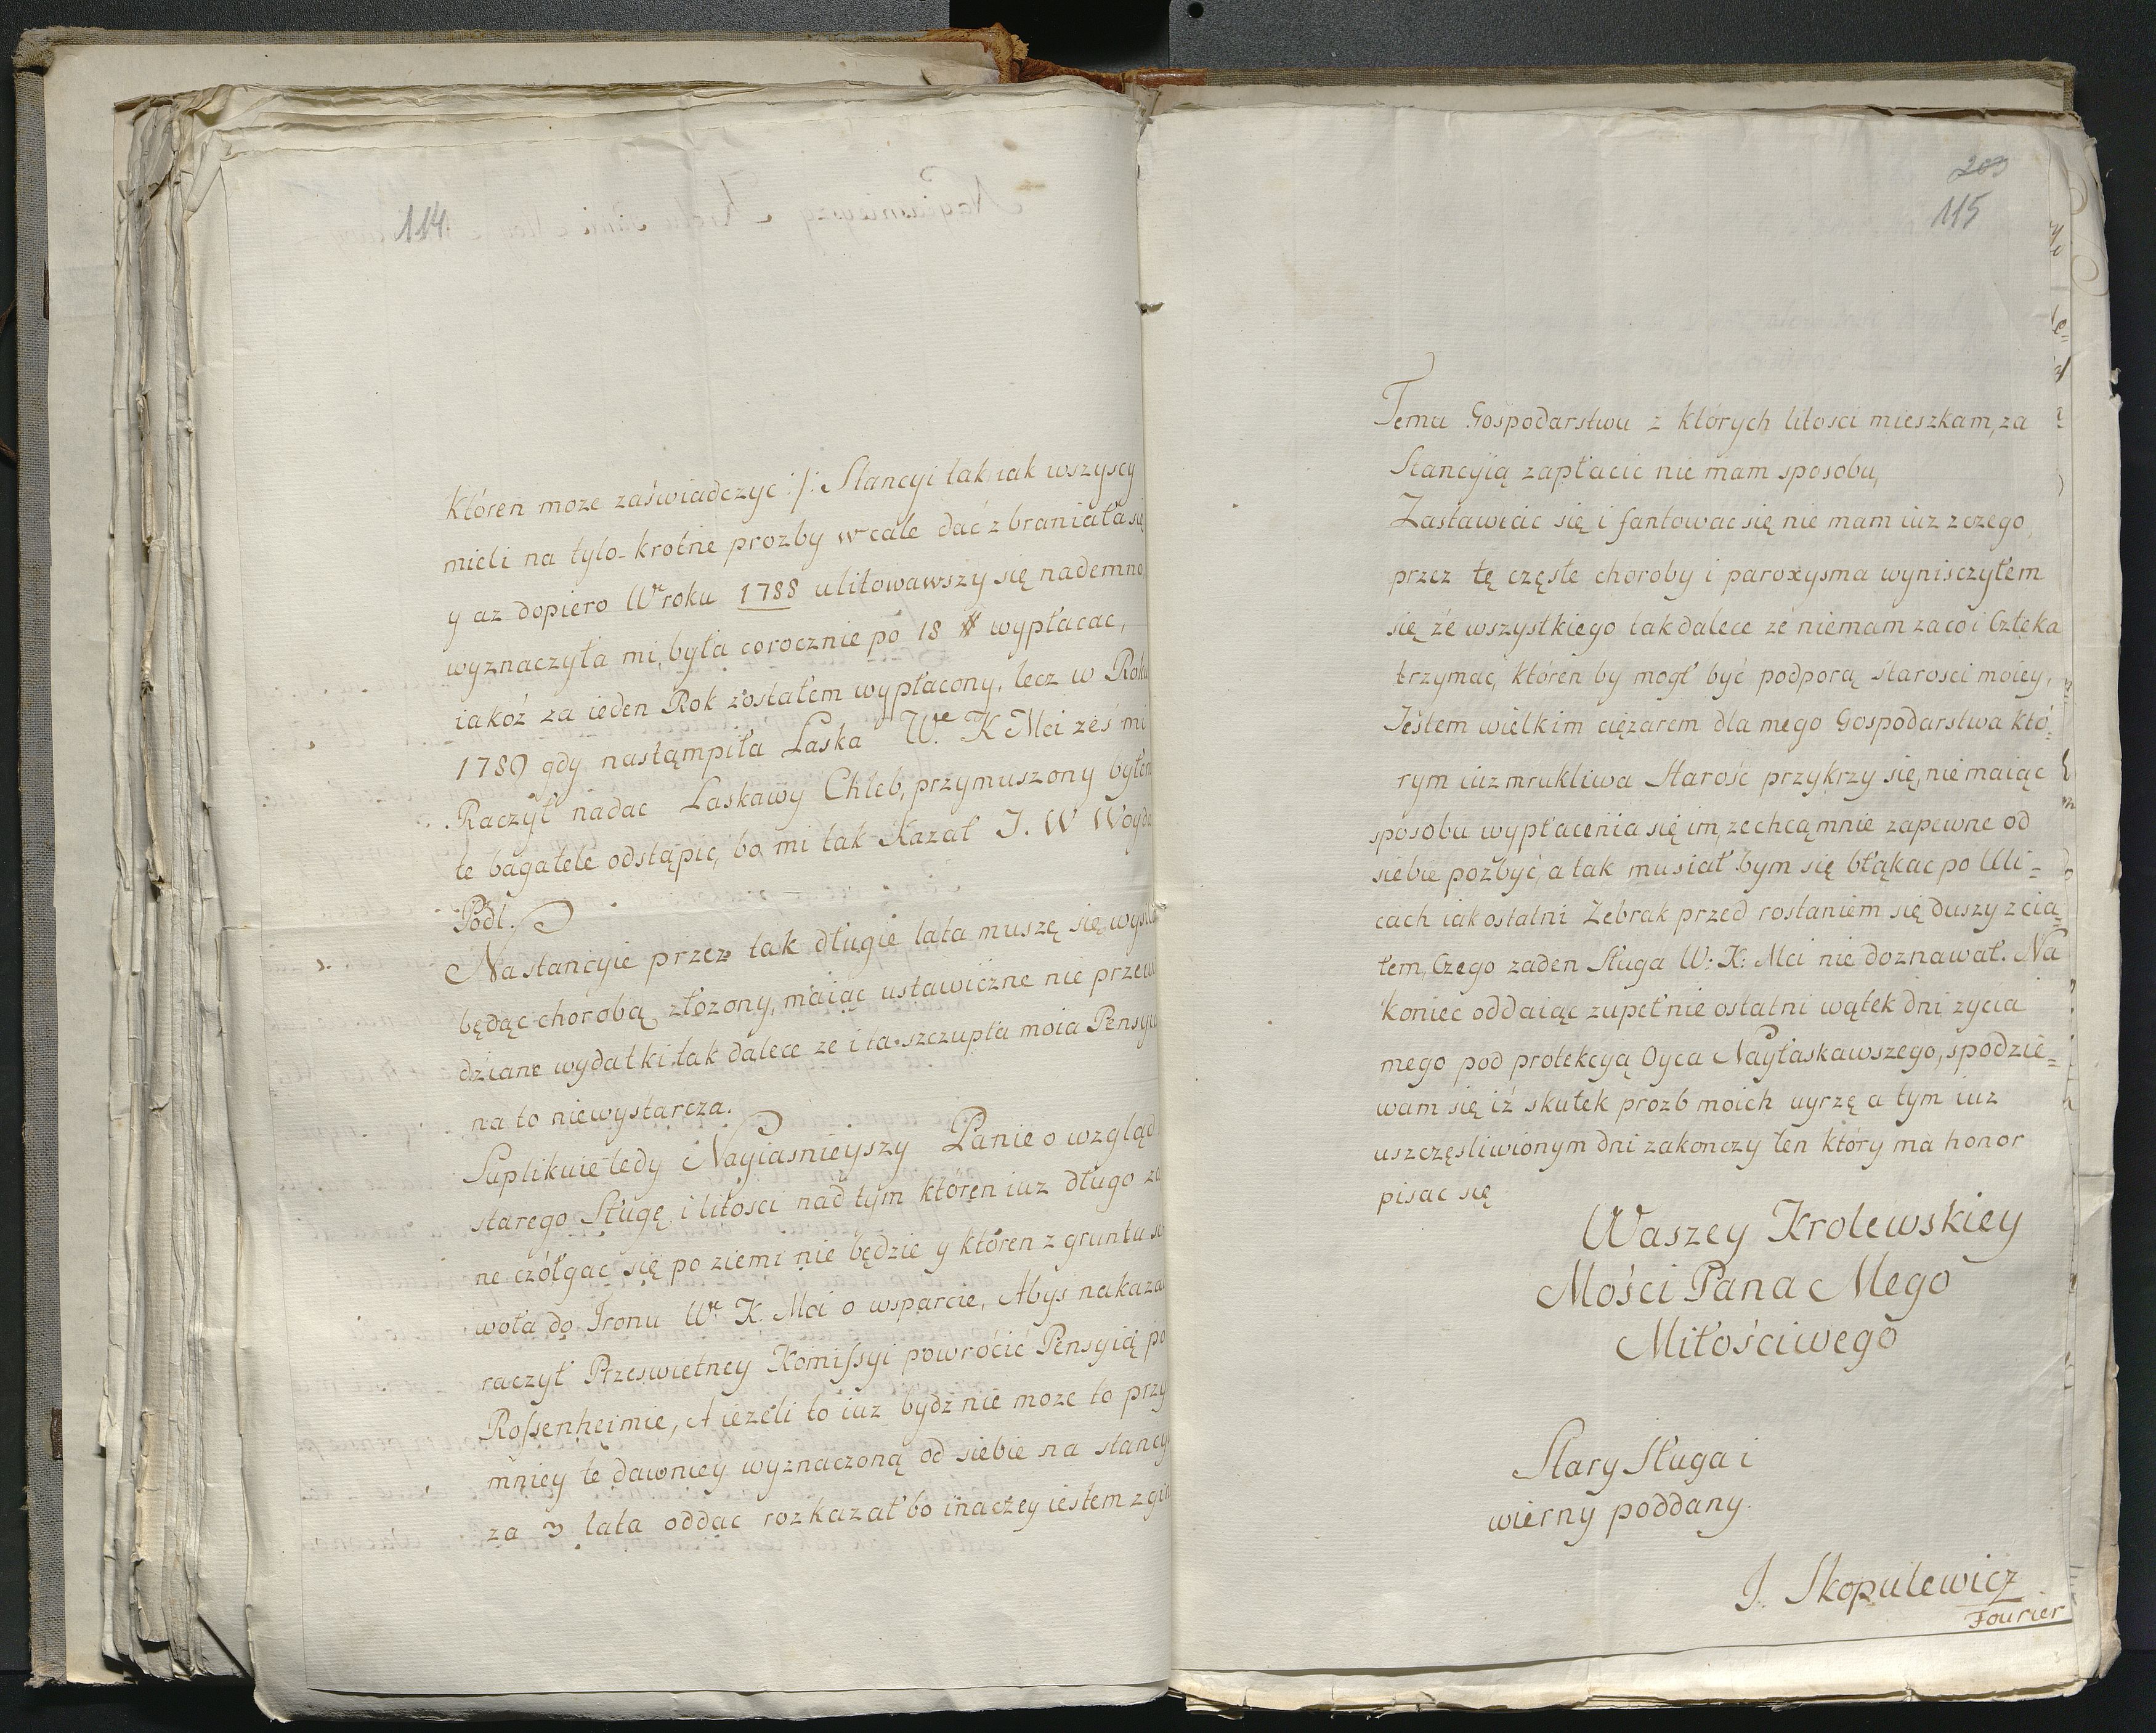 114
któren moze zaświadczyc :/: Stancyi tak iak wszyscy
mieli na tylo-krotne prozby wcale dać zbraniała się
y az dopiero W roku 1788 ulitowawszy się nademno
wyznaczyła mi, była corocznie po 18 # wypłacac,
iakoż za ieden Rok zostałem wypłacony, lecz w Roku
1789 gdy nastąmpiła Łaska W.e K Mci zes mi
Raczył nadac Łaskawy Chleb, przymuszony byłem
te bagatele odstąpic, bo mi tak Kazał J. W Woyda
Podł.
Na stancyie przez tak długie lata muszę się
będąc chorobą złozony, maiąc ustawiczne nie
dziane wydatki tak dalece ze i ta szczupła moia
na to niewystarcza.
Suplikuie tedy Nayiasnieyszy Panie o wzgląd
starego Sługę i litosci nad tym któren iuz długo
ne czółgac się po ziemi nie będzie y któren z gruntu
woła do Tronu W.e K. Mci o wsparcie, Abys
raczył Przeswietney Komissyi powrócić Pensyią po
Rossenheimie, A iezeli to iuz bydz nie moze to przy
mniey te dawniey wyznaczoną od siebie na
za 3 lata oddac rozkazał bo inaczey iestem
203
115
Temu Gospodarstwu z których litosci mieszkam, za
Stancyią zapłacic nie mam sposobu,
Zastawiac się i fantowac się nie mam iuz zczego,
przez tę częste choroby i paroxysma wynisczyłem
się źe wszystkiego tak dalece ze niemam zaco i Człeka
trzymac, któren by mogł być podporą starosci moiey,
Jestem wielkim cięzarem dla mego Gospodarstwa któ=
rym iuz mrukliwa Starośc przykrzy się, nie maiąc
sposobu wypłacenia się im, zechcą mnie zapewne od
siebie pozbyć, a tak musiał bym się błąkac po Uli=
cach iak ostatni Zebrak przed rostaniem się duszy z cia=
łem, Czego zaden Sługa W: K: Mci nie doznawał. Na
koniec oddaiąc zupełnie ostatni wątek dni zycia
mego pod protekcyą Oyca Nayłaskawszego, spodzie=
wam się iź skutek prozb moich uyrzę a tym iuz
uszczęsliwionym dni zakonczy ten który ma honor
pisac się
Waszey Krolewskiey
Mości Pana Mego
Miłościwego
Stary Sługa i
wierny poddany.
J. Skopulewicz
Fourier